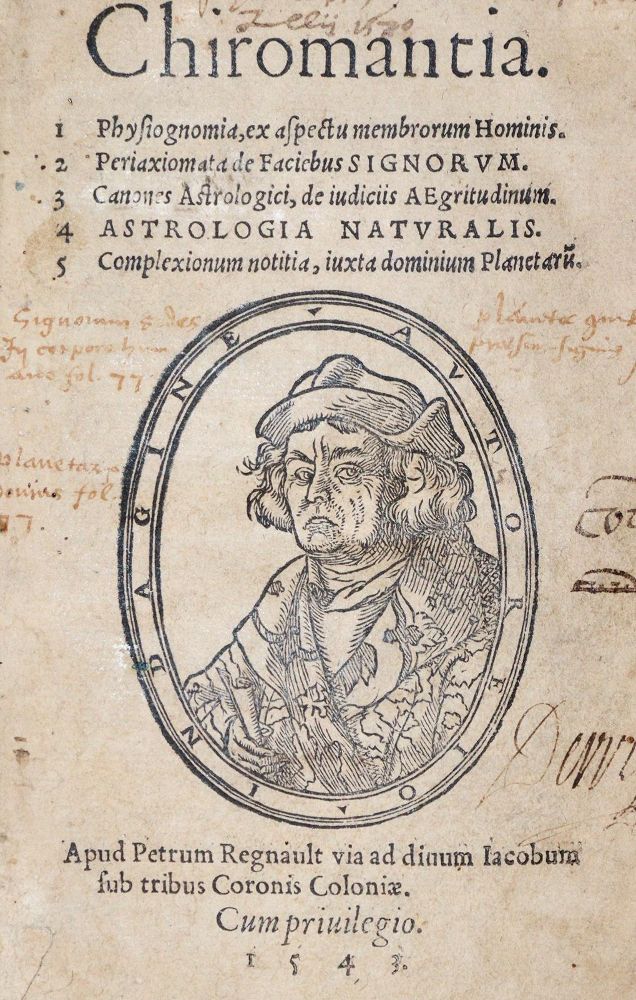 1540
Chiromantia.
1 Physiognomia, ex aſpectu membrorum Hominis.
2 Periaxiomata de Faciebus SIGNORVM.
3 Canones Aſtrologici, de iudiciis AEgritudinum.
4 ASTROLOGIA NATVRALIS.
5 Complexionum notitia, iuxta dominium Planetarũ.
Signorum sedes
In corpore hum
ano fol. 77.
planetæ
fol.
77.
AVTORE IO INDAGINE
Apud Petrum Regnault via ad diuum Iacobum
ſub tribus Coronis Coloniæ.
Cum priuilegio.
1543.